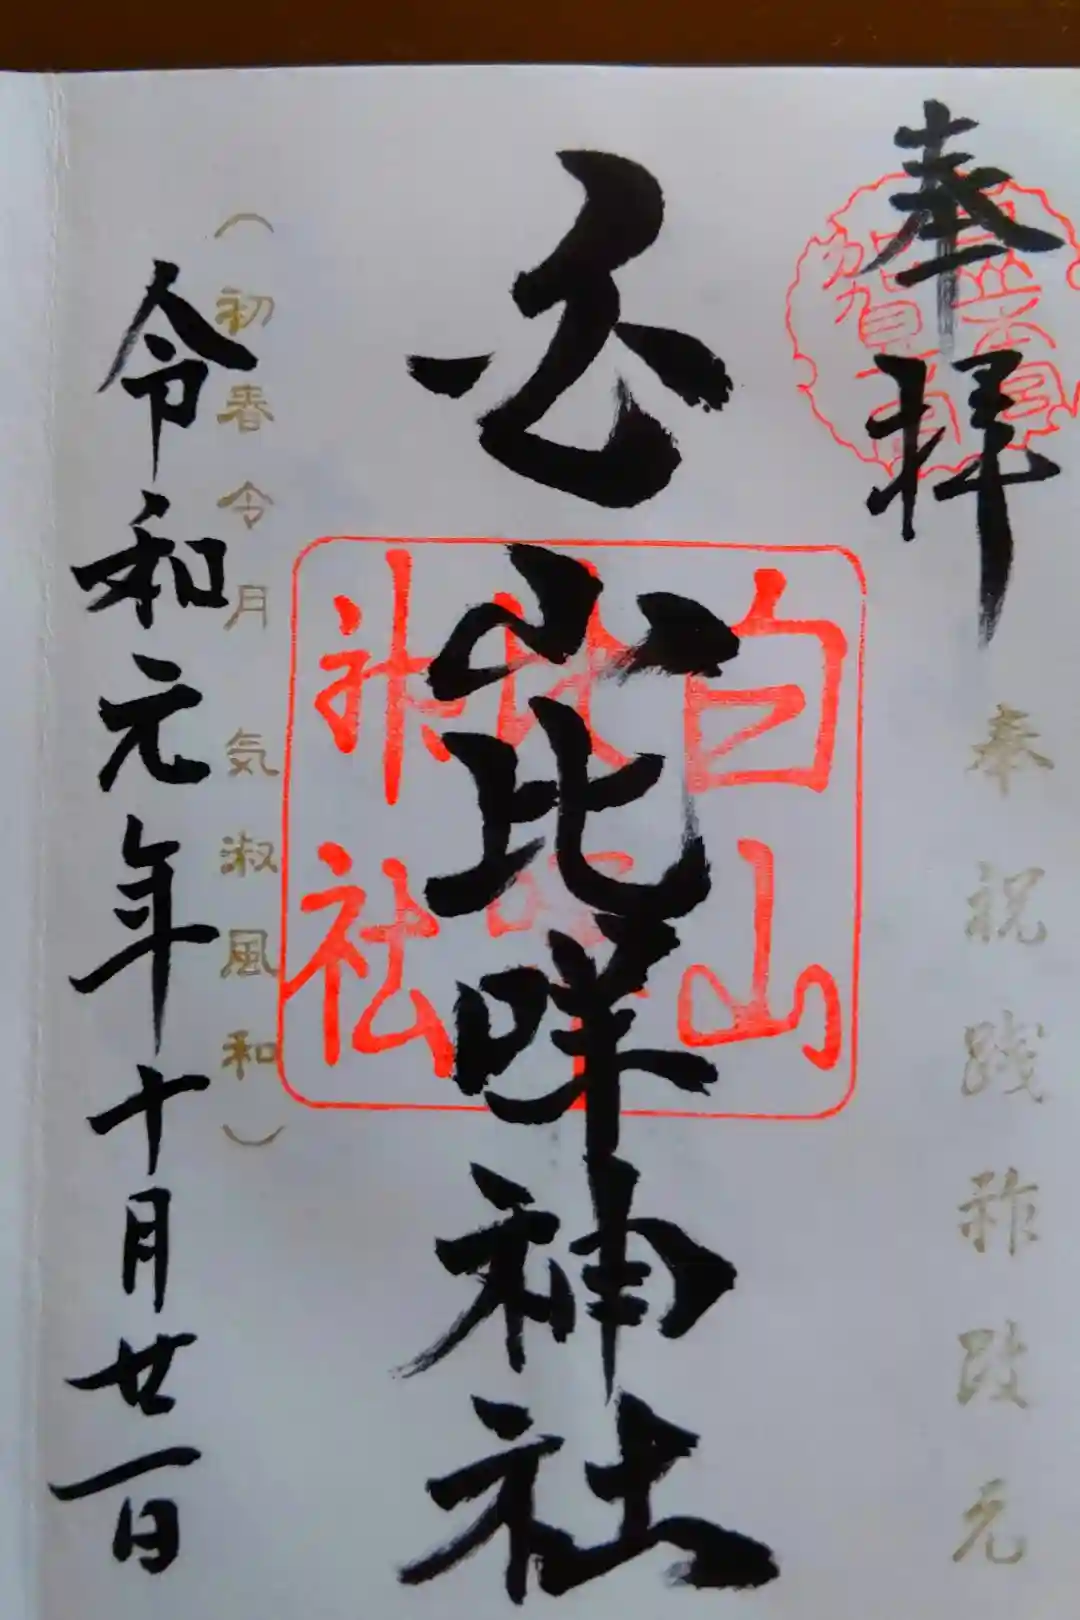 奉拝
奉祝践祚改元
白山比咩神社
白山
比咩
神社
(初春令月 気淑風和)
令和元年十月廿一日